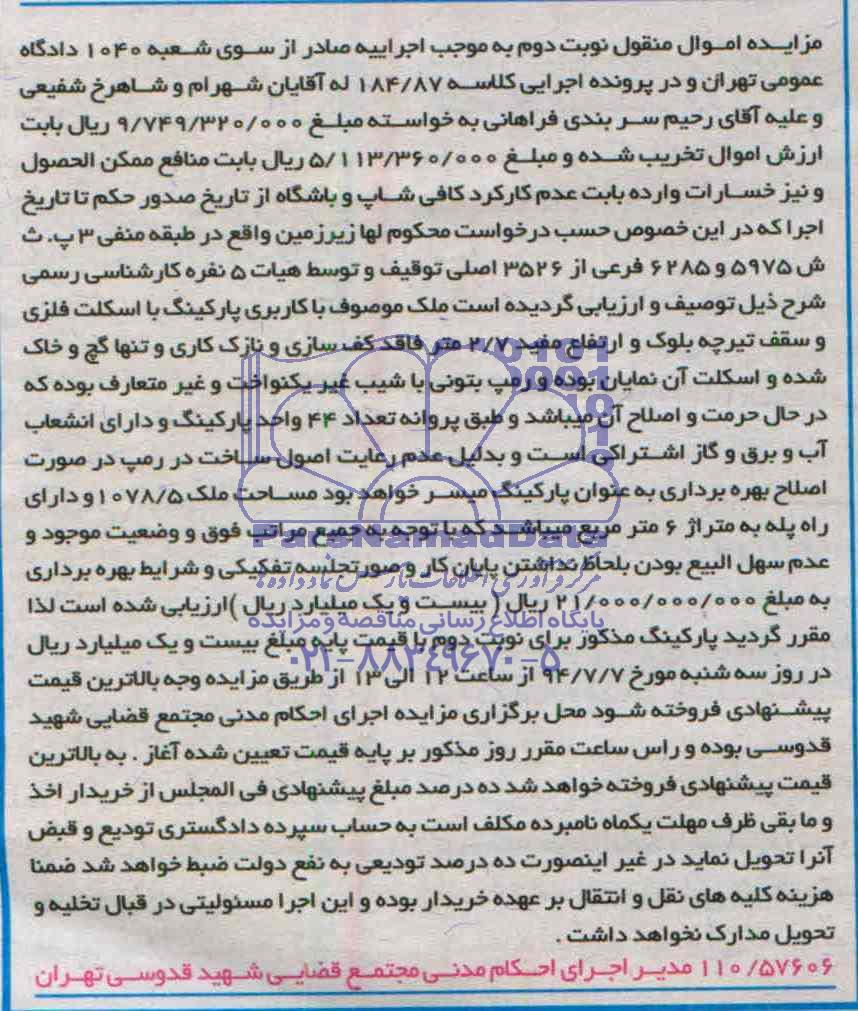 مزایده اموال منقول نوبت دوم به موجب اجراییه صادر از سوی شعبه ۱۰۴۰ دادگاه
عمومی تهران و در پرونده اجرایی کلاسه ۱۸۴/۸۷ له آقایان شهرام و شاهرخ شفیعی
و علیه آقای رحیم سر بندی فراهانی به خواسته مبلغ ۹/۷۴۹/۳۲۰/۰۰۰ ریال بابت
ارزش اموال تخریب شده و مبلغ ۵/۱۱۳/۳۶۰/۰۰۰ ریال بابت منافع ممکن الحصول
و نیز خسارات وارده بابت عدم کارکرد کافی شاپ و باشگاه از تاریخ صدور حکم تا تاریخ
اجرا که در این خصوص حسب درخواست محکوم لها زیرزمین واقع در طبقه منفی ۳ پ. ث
ش ۵۹۷۵ و ۶۲۸۵ فرعی از ۳۵۲۶ اصلی توقیف و توسط هیات ۵ نفره کارشناسی رسمی
شرح ذیل توصیف و ارزیابی گردیده است ملک موصوف با کاربری پارکینگ با اسکلت فلزی
و سقف تیرچه بلوک و ارتفاع مفید ۲/۷ متر فاقد کف سازی و نازک کاری و تنها گچ و خاک
شده و اسکلت آن نمایان بوده و رمپ بتونی با شیب غیر یکنواخت و غیر متعارف بوده که
در حال حرمت و اصلاح آن میباشد و طبق پروانه تعداد ۴۴ واحد پارکینگ و دارای انشعاب
آب و برق و گاز اشتراکی است و بدلیل عدم رعایت اصول ساخت در رمپ در صورت
اصلاح بهره برداری به عنوان پارکینگ میسر خواهد بود مساحت ملک ۱۰۷۸/۵ و دارای
راه پله به متراژ ۶ متر مربع میباشد که با توجه به جمیع مراتب فوق و وضعیت موجود و
عدم سهل البیع بودن بلحاظ نداشتن پایان کار و صورتجلسه تفکیکی و شرایط بهره برداری
به مبلغ ۲۱/۰۰۰/۰۰۰/۰۰۰ ریال ( بیست و یک میلیارد ریال )ارزیابی شده است لذا
مقرر گردید پارکینگ مذکور برای نوبت دوم با قیمت پایه مبلغ بیست و یک میلیارد ریال
در روز سه شنبه مورخ ۹۴/۷/۷ از ساعت ۱۲ الی ۱۳ از طریق مزایده وجه بالاترین قیمت
پیشنهادی فروخته شود محل برگزاری مزایده اجرای احکام مدنی مجتمع قضایی شهید
قدوسی بوده و راس ساعت مقرر روز مذکور بر پایه قیمت تعیین شده آغاز . به بالاترین
قیمت پیشنهادی فروخته خواهد شد ده درصد مبلغ پیشنهادی فی المجلس از خریدار اخذ
و ما بقی ظرف مهلت یکماه نامبرده مکلف است به حساب سپرده دادگستری تودیع و قبض
آنرا تحویل نماید در غیر اینصورت ده درصد تودیعی به نفع دولت ضبط خواهد شد ضمنا
هزینه کلیه های نقل و انتقال بر عهده خریدار بوده و این اجرا مسئولیتی در قبال تخلیه و
تحویل مدارک نخواهد داشت .
۱۱۰/۵۷۶۰۶ مدیر اجرای احکام مدنی مجتمع قضایی شهید قدوسی تهران
ParsNamadData
مرکز فرآوری اطلاعات پارس نماد داده ها
پایگاه اطلاع رسانی مناقصه و مزایده
۰۲۱-۸۸۳۴۹۶۷۰-۵